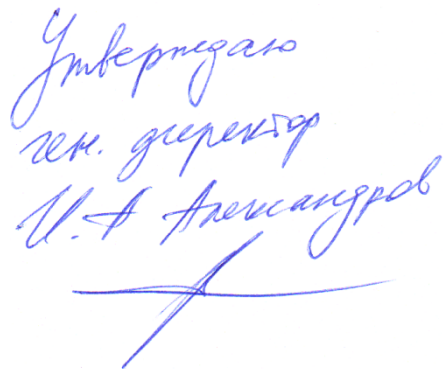 Утверждаю
ген. директор
И. А Александров